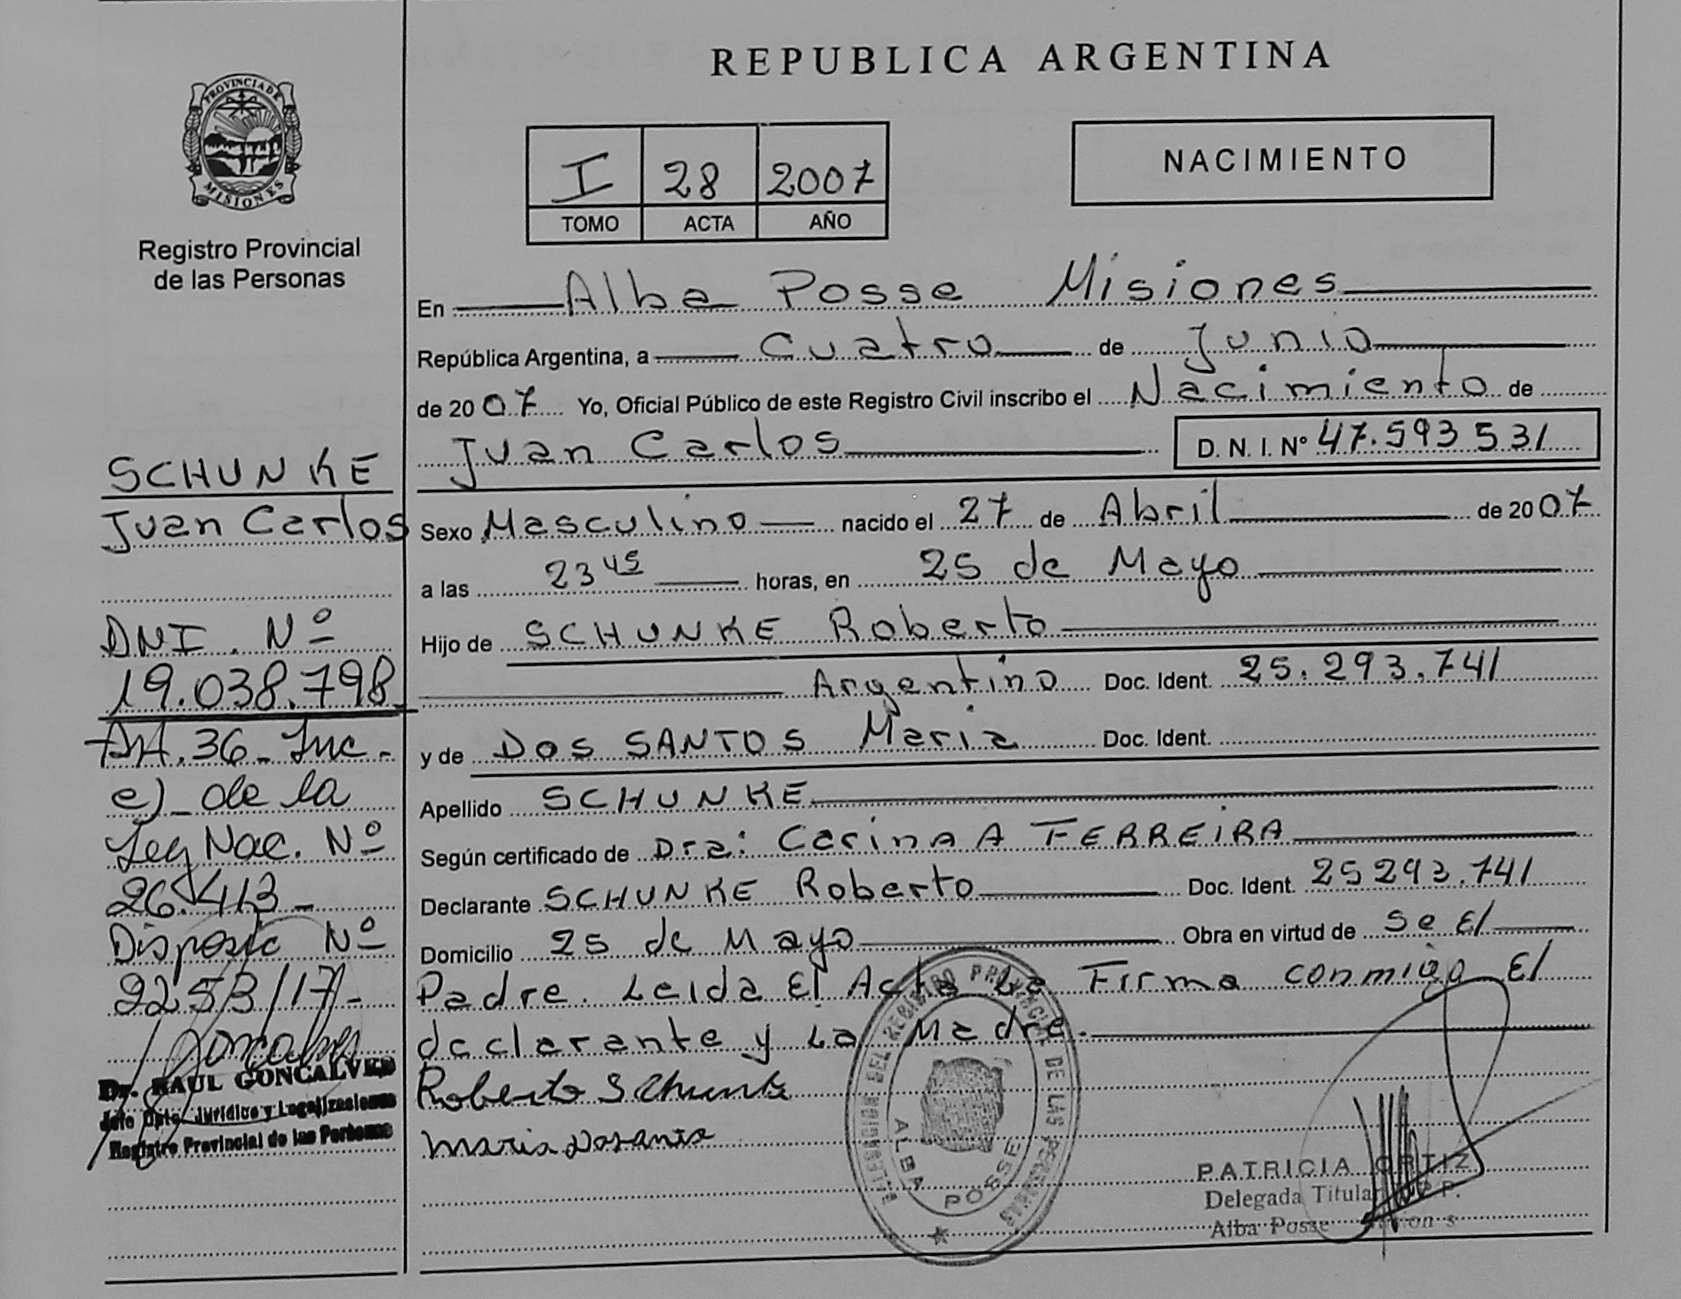 PROVINCIA DE
MISIONES
Registro Provincial
de las Personas
SCHUNKE
Juan Carlos
DNI. Nº
19.038.798
Art. 36 - Inc -
e) - de la
Ley Nac. Nº
26.413 -
Disposic Nº
2253/17 -
Dr. RAUL GONCALVES
Jefe Dpto. Jurídico y Legalizaciones
Registro Provincial de las Personas
REPUBLICA ARGENTINA
I 28 2007
TOMO ACTA AÑO
NACIMIENTO
En Alba Posse Misiones
República Argentina, a Cuatro de Junio
de 2007 Yo, Oficial Público de este Registro Civil inscribo el Nacimiento de
Juan Carlos D. N. I. Nº 47.593531
Sexo Masculino nacido el 27 de Abril de 2007
a las 23 45 horas, en 25 de Mayo
Hijo de SCHUNKE Roberto
Argentino Doc. Ident. 25.293.741
y de DOS SANTOS Maria Doc. Ident.
Apellido SCHUNKE
Según certificado de Dra: Carina A FERREIRA
Declarante SCHUNKE Roberto Doc. Ident. 25293.741
Domicilio 25 de Mayo Obra en virtud de Se El
Padre. Leida El Acta La Firma conmigo El
declarante y La Madre.
Roberto Schunke
Maria Dosantos
DEL REGISTRO PROVINCIAL DE LAS PERSONAS
ALBA POSSE
PATRICIA ORTIZ
Delegada Titular R.P.P.
Alba Posse Misiones